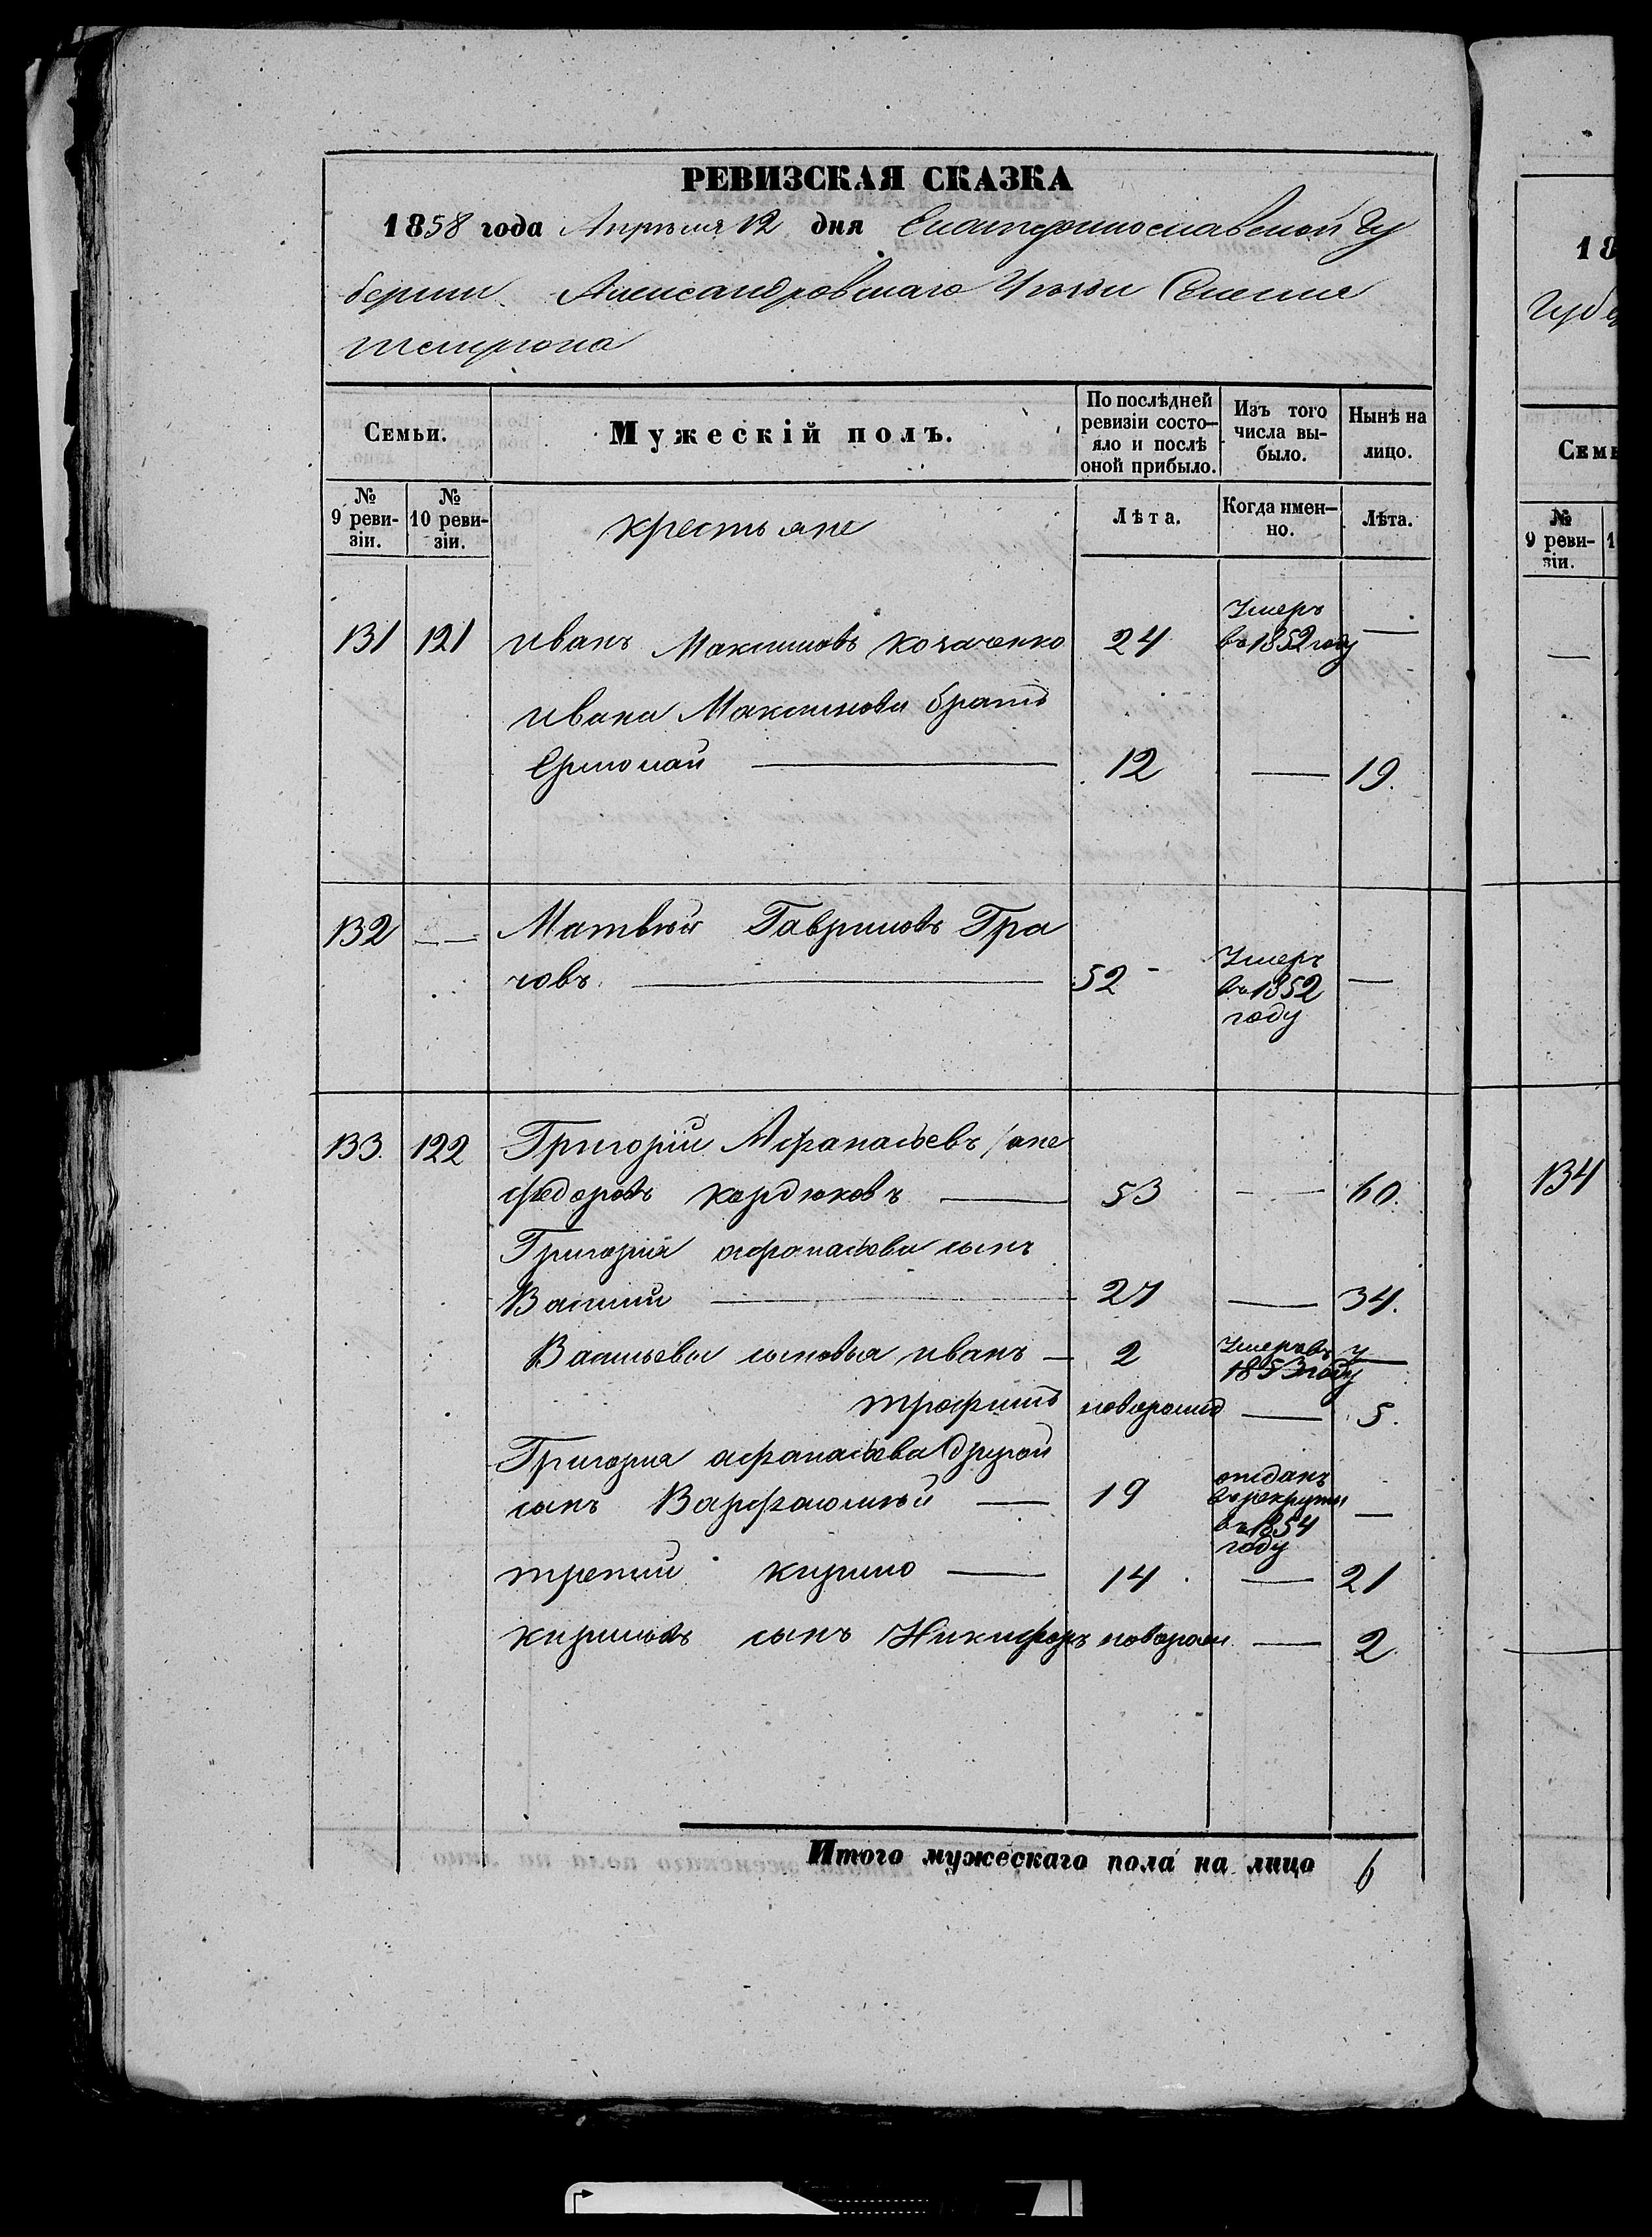 РЕВИЗСКАЯ СКАЗКА
1858 года Апреля 12 дня Екатеринославской Гу
берни Александровскаго Уезда Селения
Темрюка
Семьи. Мужескій полъ. По послѣдней ревизіи состояло и послѣ оной прибыло. Изъ того числа выбыло. Нынѣ на лицо.
№ 9 ревизіи. № 10 ревизіи. крестьяне Лѣта. Когда именно. Лѣта.
131 121 иванъ Максимовъ Козаченко 24 Умеръ въ 1852 году —
ивана Максимова братъ
Ермолай — 12 — 19.
132 — — Матвѣй Гавриловъ Гра
човъ — 52 Умеръ въ 1852 году —
133. 122 Григорій Афанасьевъ /а не
федоровъ кордюковъ — 53 — — 60.
Григорія афанасьева сынъ
Василий — 27 — 34.
Васильевы сыновья иванъ — 2 Умеръ въ 1853 году —
трофимъ новорожд — 5.
Григорія афанасьева другой
сынъ Варфаломѣй — 19 отданъ въ рекруты въ 1854 году —
третий кирило — 14 — 21
кириловъ сынъ Никифоръ новорож — 2.
Итого мужескаго пола на лицо 6
18
Губе
Семь
№ 9 ревизіи. 1
—
134